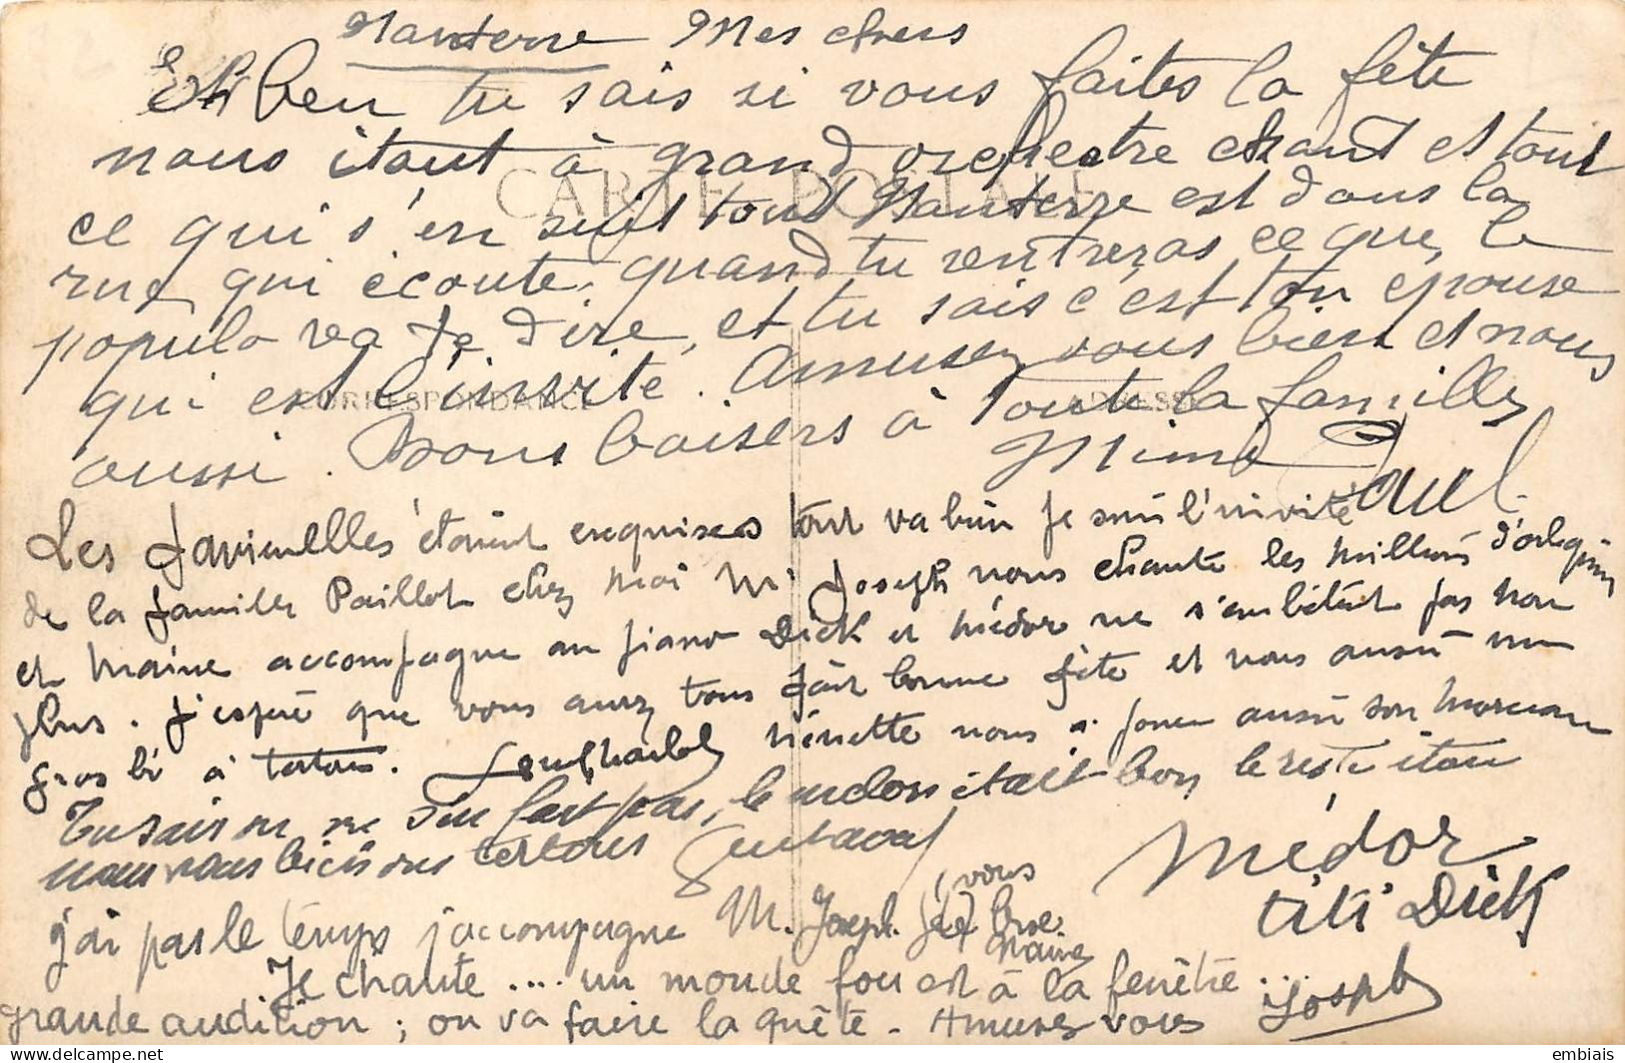 Nanterre Mes chers
Eh ben tu sais si vous faites la fête
nous itout à grand orchestre chant et tout
ce qui s'en suit tout Nanterre est dans la
rue qui écoute, quand tu rentreras ce que le
populo va te dire, et tu sais c'est ton épouse
qui est l'invité. Amusez vous bien et nous
aussi. Bons baisers à toute la famille
Mimi Paul
CARTE POSTALE
CORRESPONDANCE
ADRESSE
Les étaient exquises tout va bien je suis l'invité
de la famille Paillot chez moi Mr Joseph nous chante les
et Maine accompagne au piano Dick et Médor ne s'embêtent pas non
plus. J'espère que vous aurez tous fait bonne fête et vous aussi un
gros bi à tertous. Ninette nous a joué aussi son morceau
Tu sais on ne s'en fait pas, le melon était bon le reste itou
nous vous bicis ous tertous Gustave
Médor
titi Dick
j'ai pas le temps j'accompagne M. Joseph je vous bise
Maine
Je chante .... un monde fou est à la fenêtre ...
grande audition ; on va faire la quête - Amusez vous Joseph
embiais